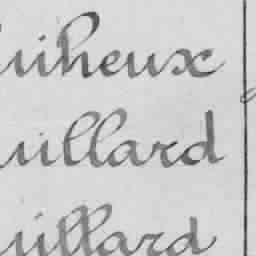 uiheux
uillard
uillard